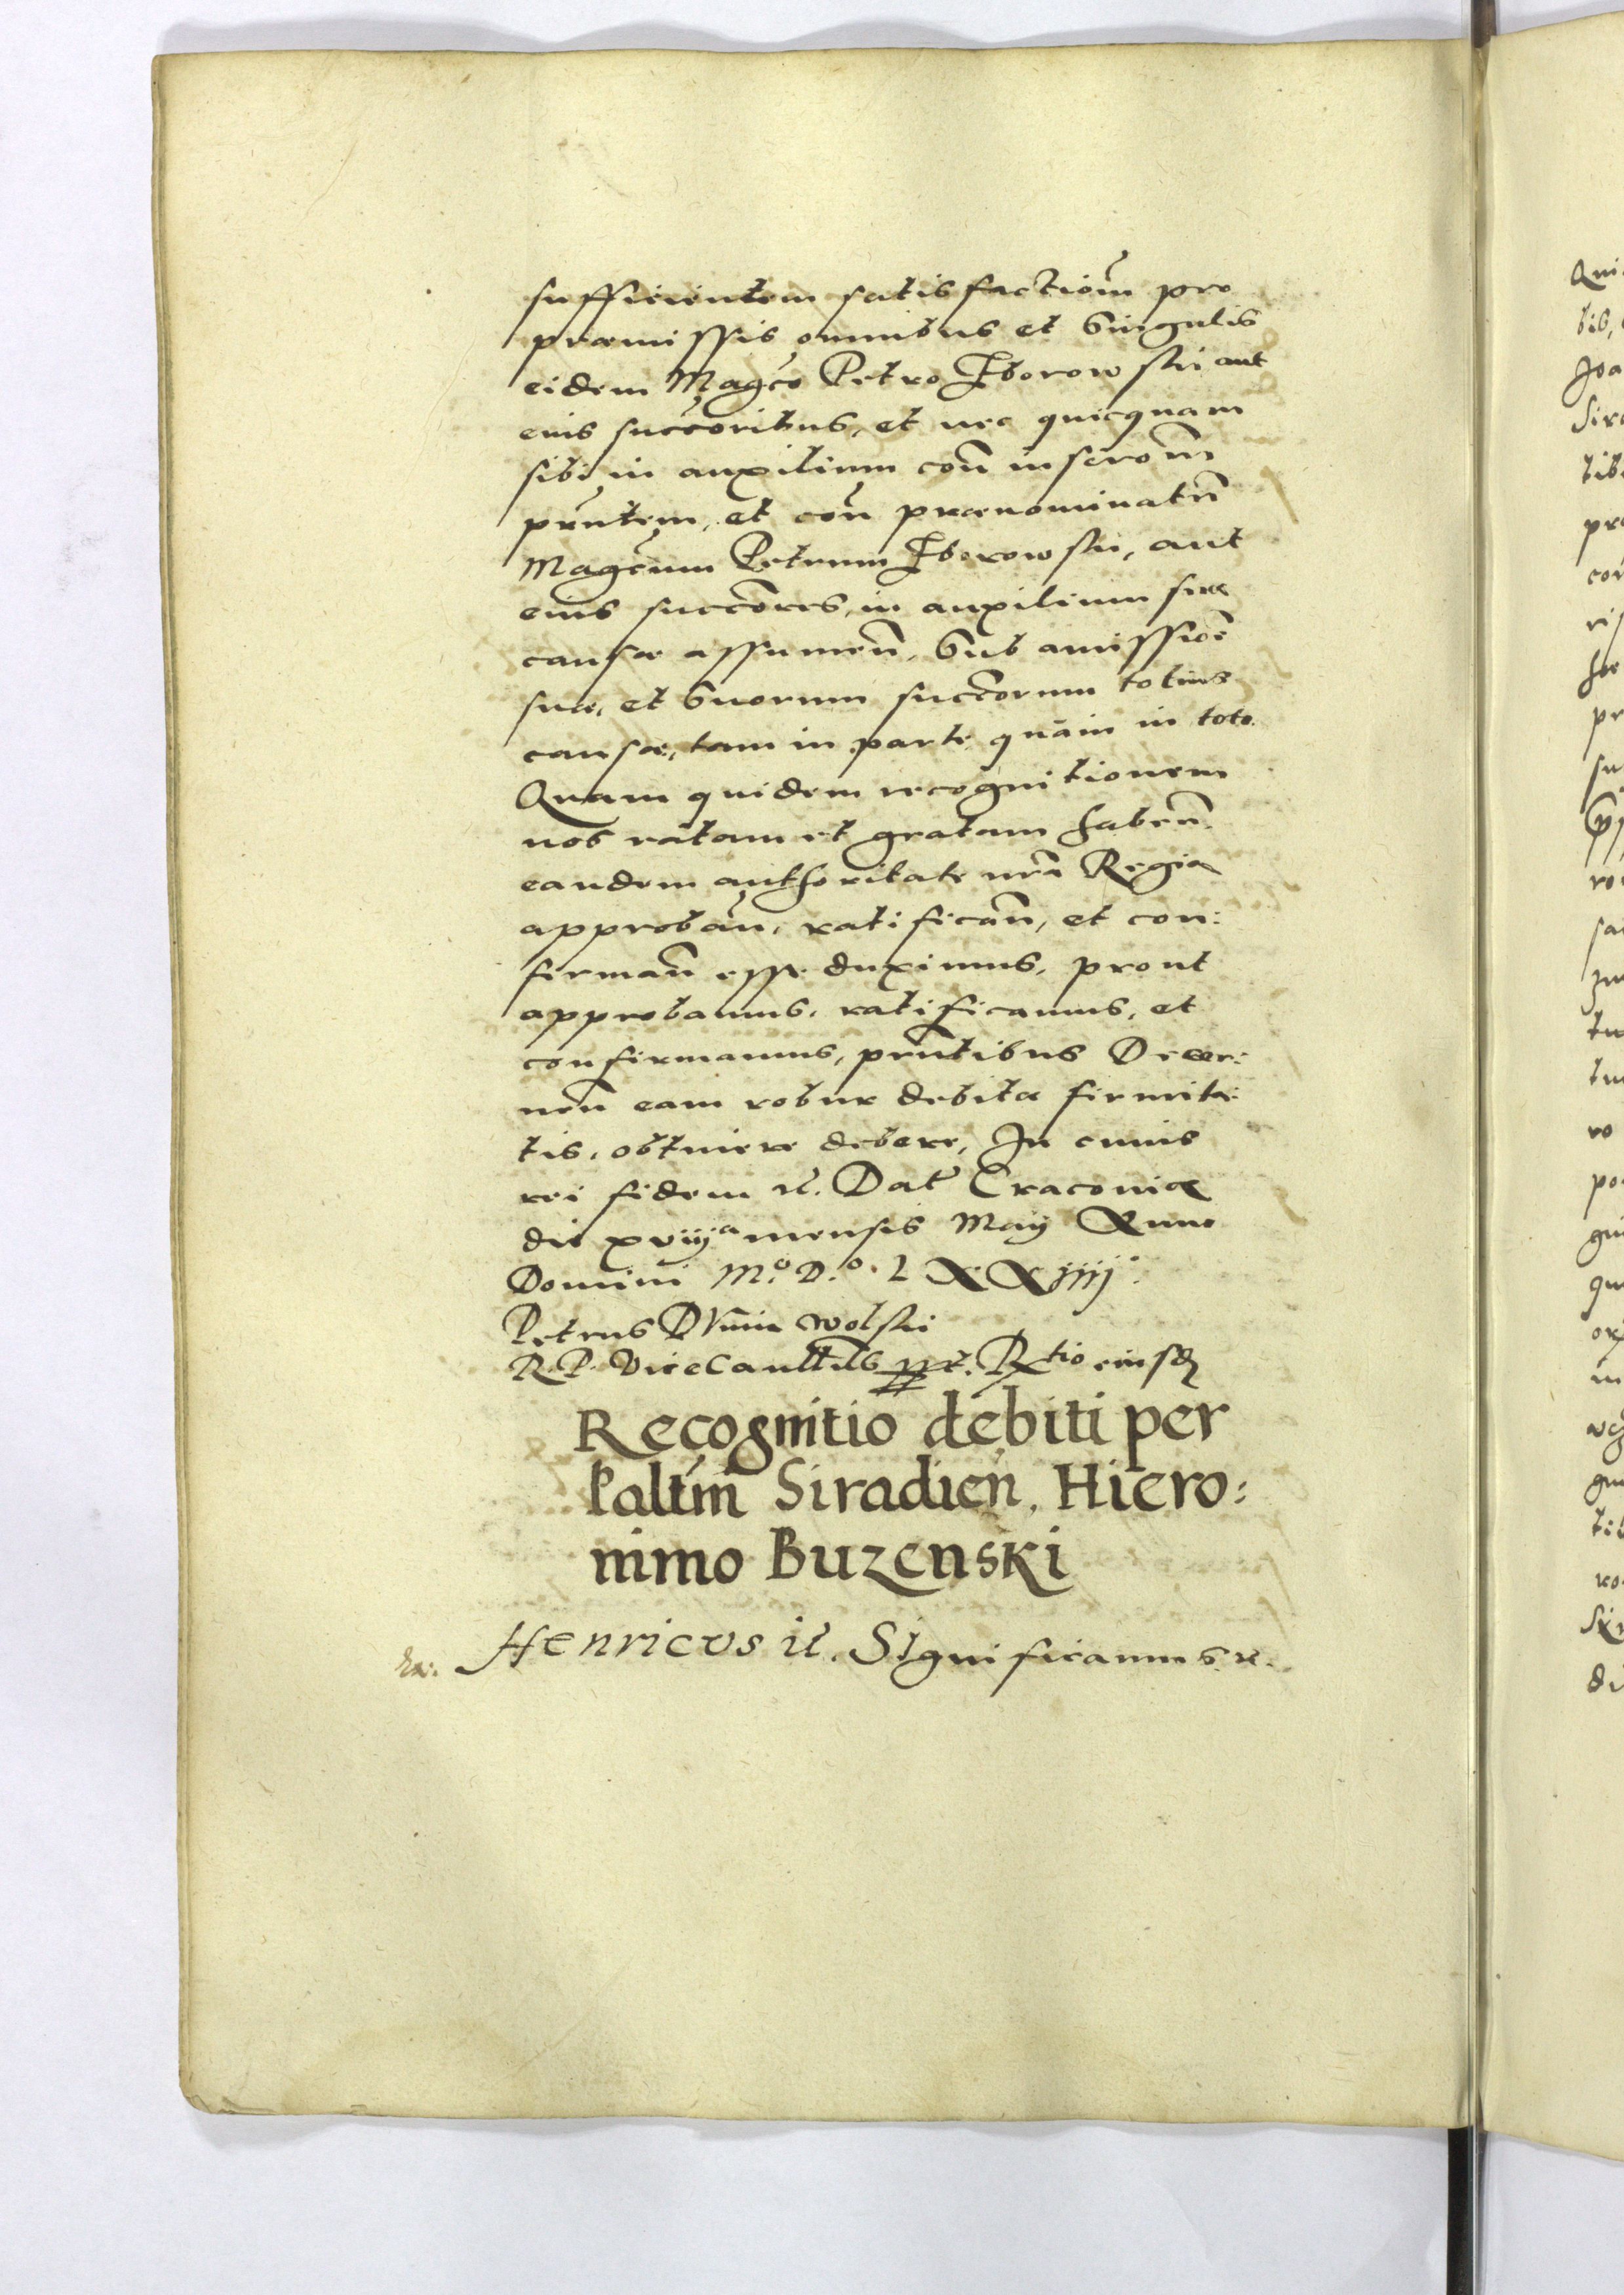 sufficientem satisfactiom̃ pro
præmissis omnibus et Singulis
eidem Magco Petro Zborowski aut
eius succoribus, et nec quicquam
sibi in auxilium coñ inscrom̃
prñtem, et coñ prænominatũ
Magcum Petrum Zborowski, aut
eius succores, in auxilium suæ
causæ assumeñ, Sub amissioẽ
suæ, et Suorum succorum totius
causæ, tam in parte quàm in toto.
Quam quidem recognitionem
nos ratam et gratam habeñ
eandem authoritate nrã Regia
approbañ, ratificañ, et con:
firmañ esse duximus, prout
approbamus, ratificamus, et
confirmamus, prñtibus Decer:
neñ eam robur debitæ firmita:
tis, obtinere debere, In cuius
rei fidem etc. Dat Cracoviæ
die xviija mensis Maij Anno
Domini M.o D.o LXXiiij.
Petrus Dunin Wolski
R. P. ViceCanllrius sst. Rtio eiusdẽ
Recognitio debiti per
Paltm̃ Siradieñ, Hiero:
nimo Buzenski
Henricus etc. Significamus etc.